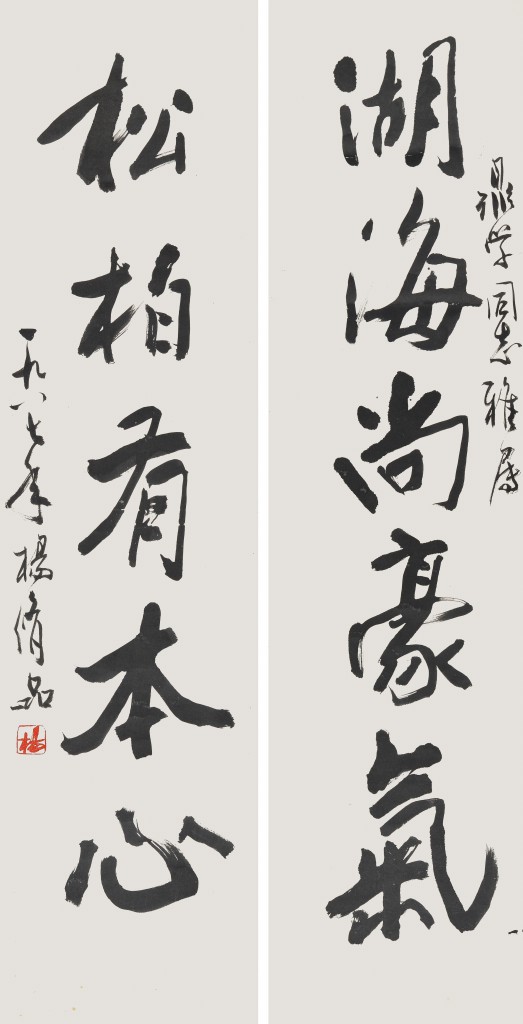 鼎学同志雅属
湖海尚豪氣
松柏有本心
一九八七年楊脩品
楊